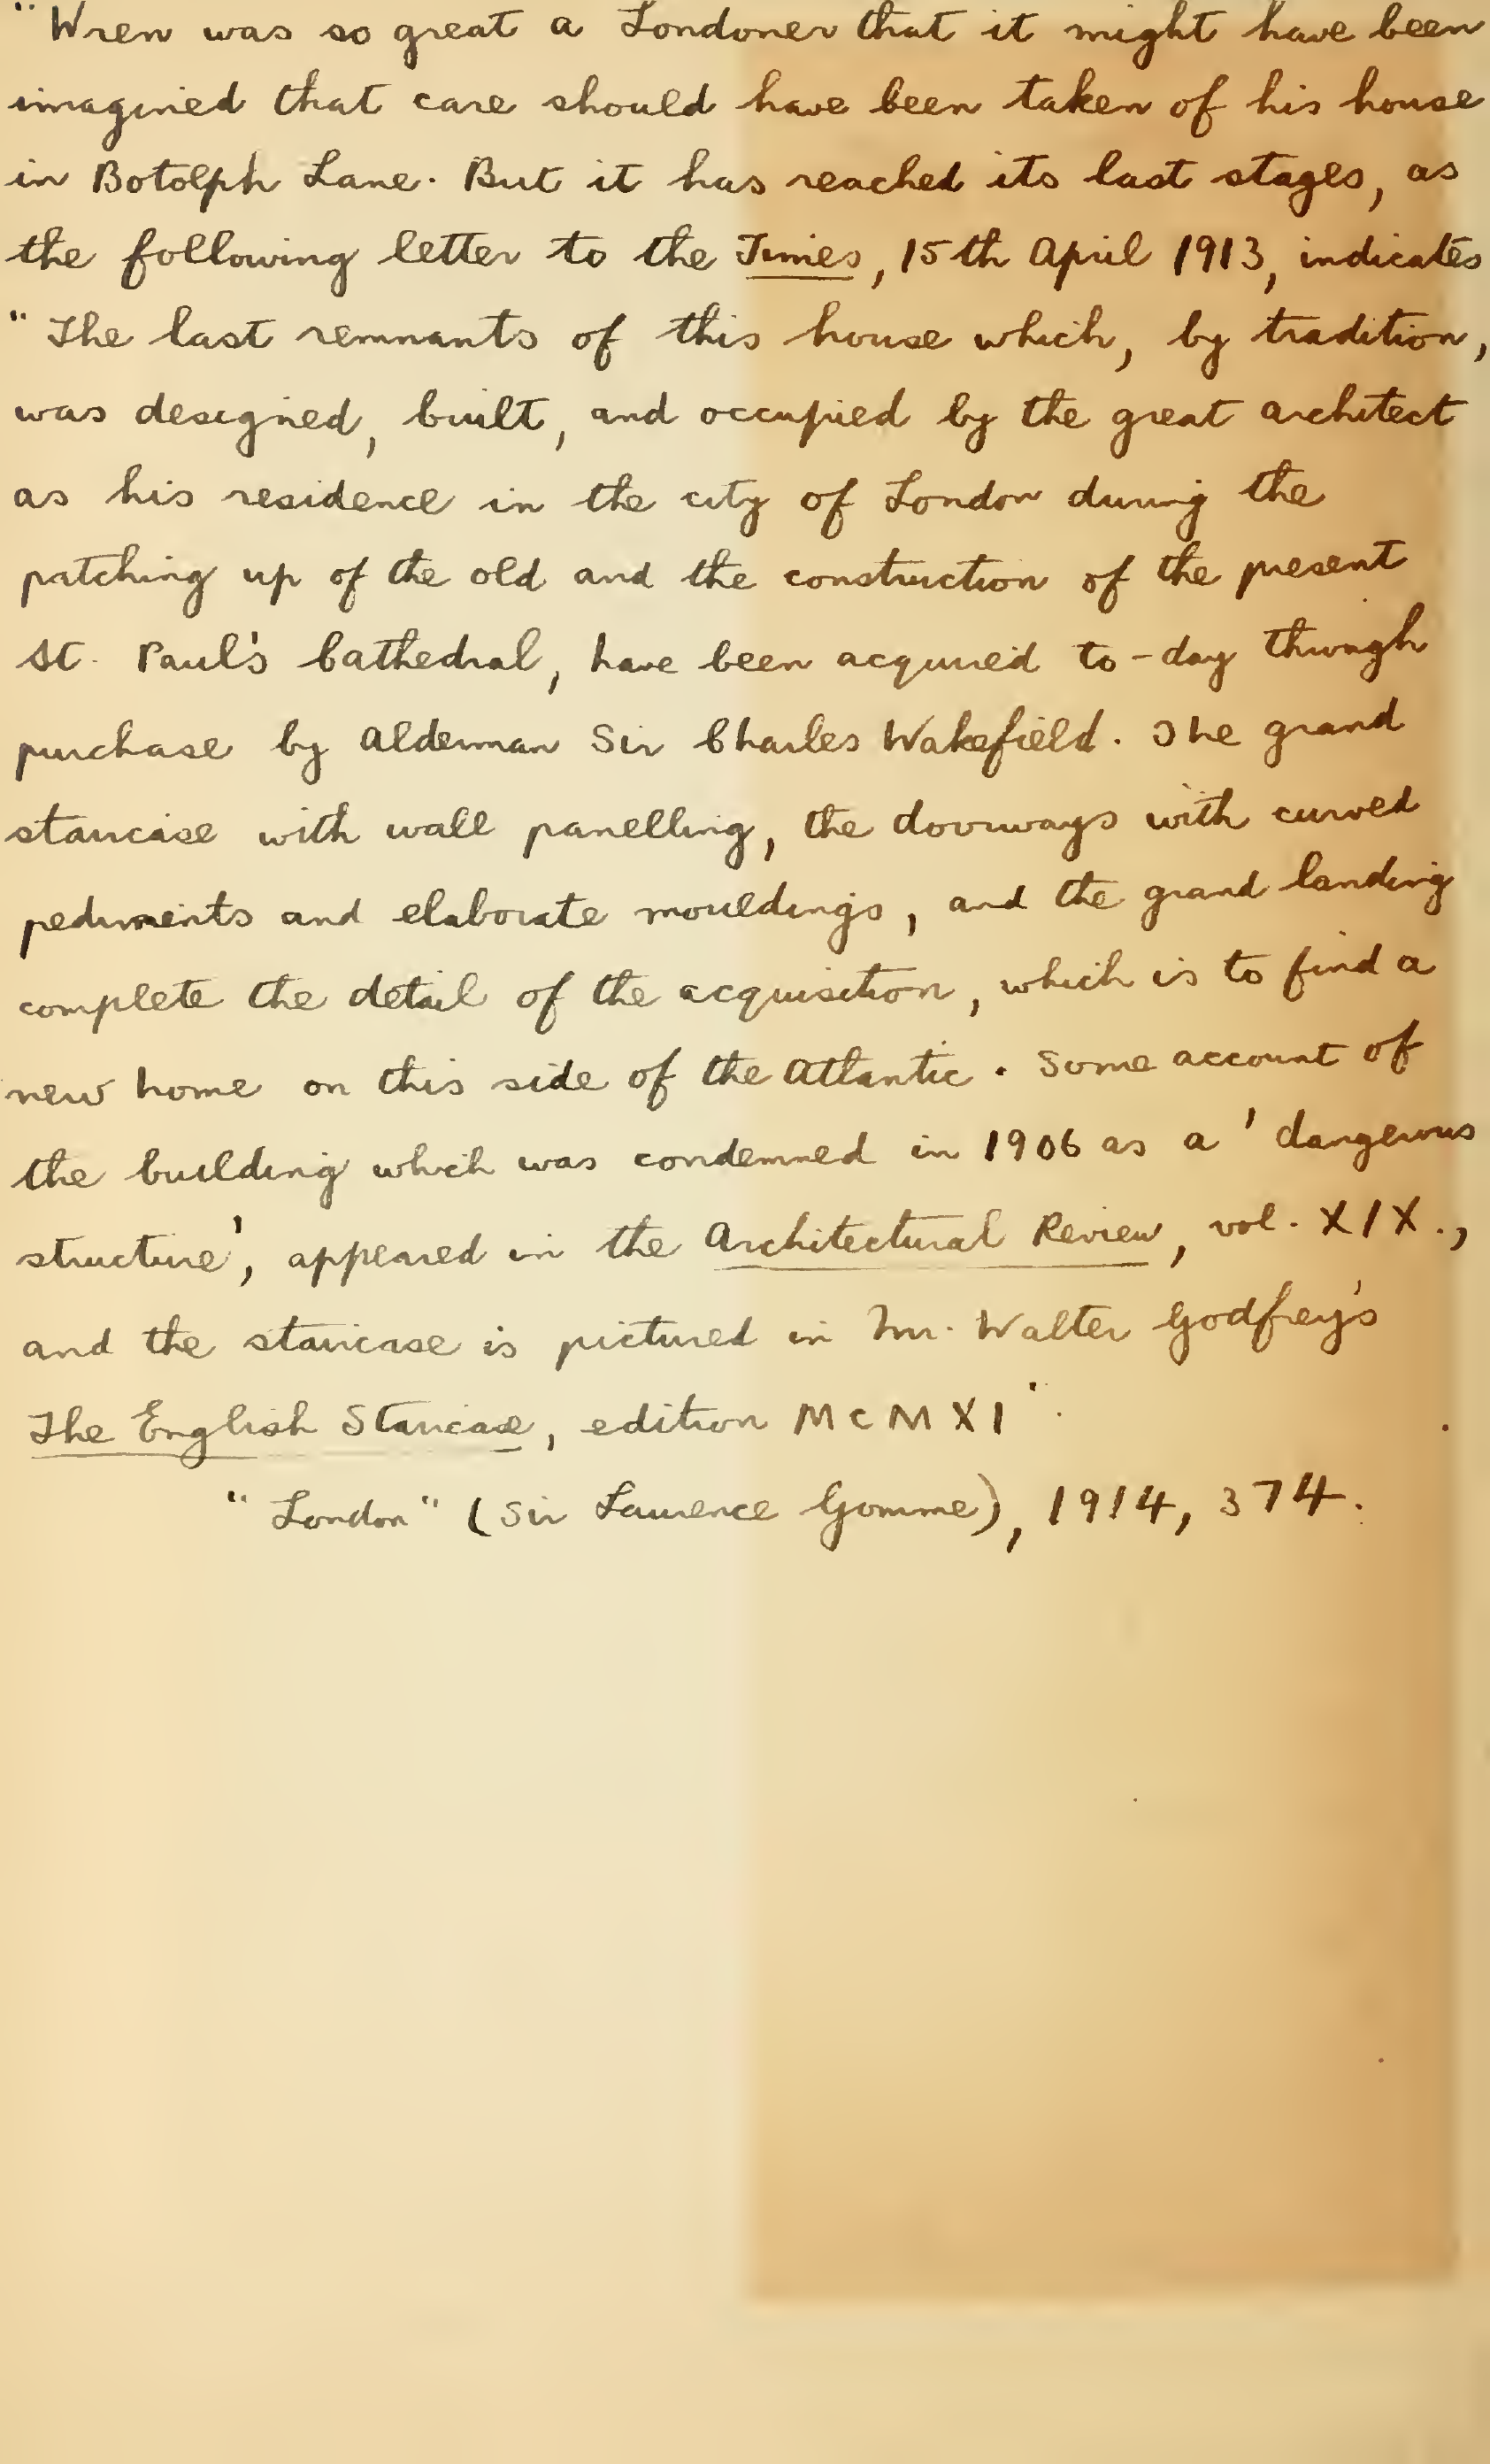 "Wren was so great a Londoner that it might have been
imagined that care should have been taken of his house
in Botolph Lane. But it has reached its last stages, as
the following letter to the Times, 15th April 1913, indicates
"The last remnants of this house which, by tradition,
was designed, built, and occupied by the great architect
as his residence in the city of London during the
patching up of the old and the construction of the present
St. Paul's Cathedral, have been acquired to-day through
purchase by Alderman Sir Charles Wakefield. The grand
staircase with wall panelling, the doorways with curved
pediments and elaborate mouldings, and the grand landing
complete the detail of the acquisition, which is to find a
new home on this side of the Atlantic. Some account of
the building which was condemned in 1906 as a 'dangerous
structure', appeared in the Architectural Review, vol. XIX.,
and the staircase is pictured in Mr. Walter Godfrey's
The English Staircase, edition MCMXI".
"London" (Sir Laurence Gomme), 1914, 374.